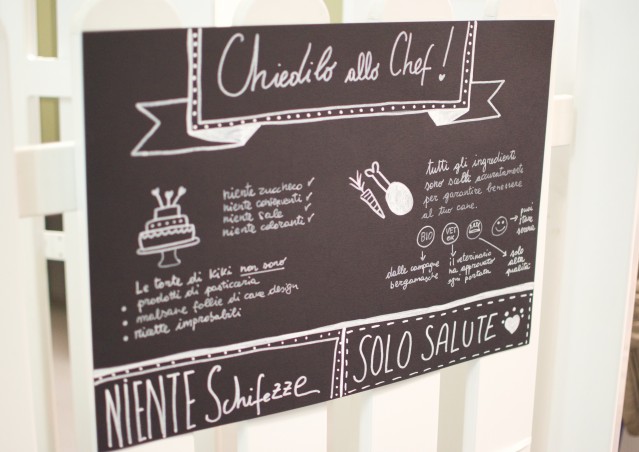 Chiedilo allo Chef!
niente zucchero ✓
niente conservanti ✓
niente sale ✓
niente coloranti ✓
Le torte di Kiki non sono
• prodotti di pasticceria
• malsane follie di cane design
• ricette improbabili
tutti gli ingredienti
sono scelti accuratamente
per garantire benessere
al tuo cane.
BIO
VET
OK
puoi
stare
serena
dalle campagne
bergamasche
il veterinario
ha approvato
ogni portata
solo
alta
qualità
NIENTE Schifezze
SOLO SALUTE